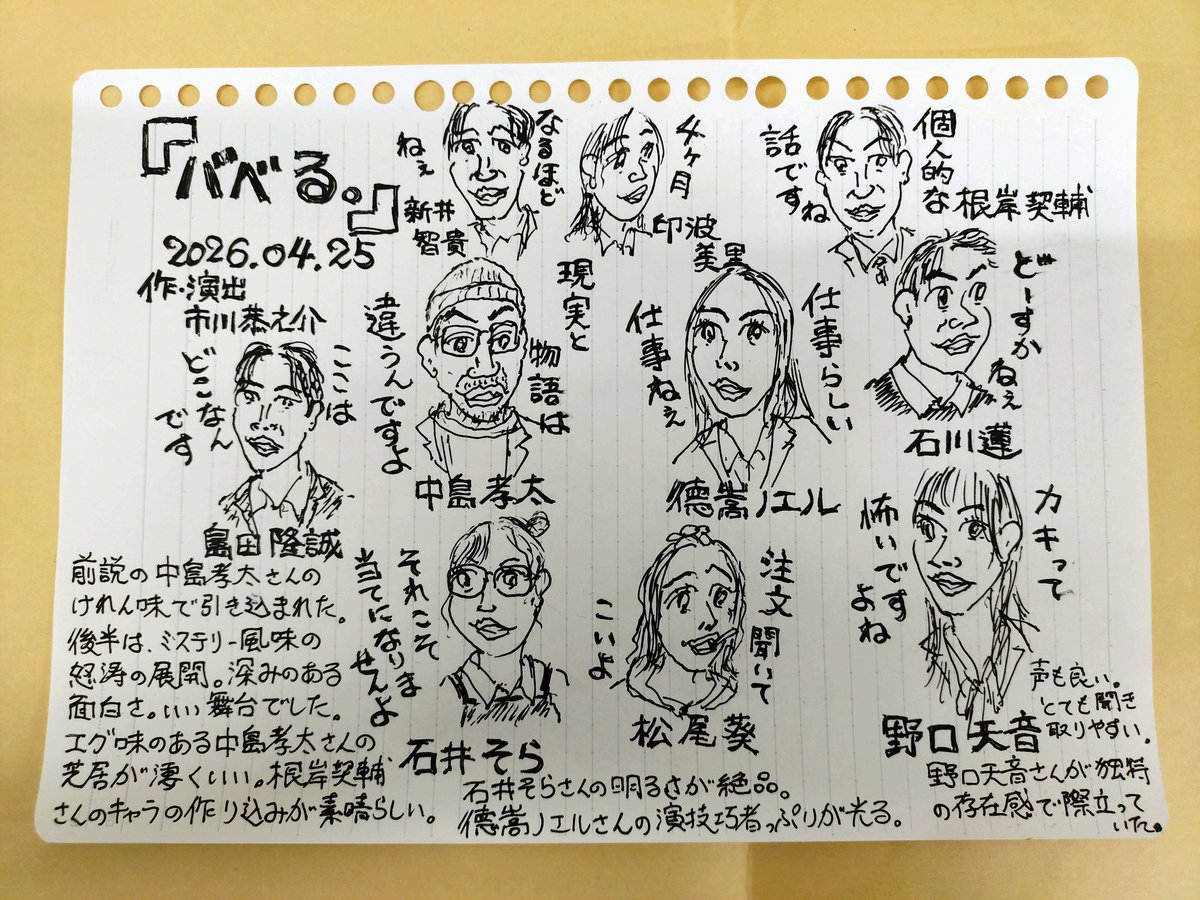 『バベる。』
2026.04.25
作・演出
市川恭之介
なるほど
ねぇ
新井
智貴
4ヶ月
印波
美里
個人的な
話ですね
根岸契輔
ここは
どこなん
です
島田隆誠
現実と
物語は
違うんですよ
中島孝太
仕事らしい
仕事ねぇ
德嵩ノエル
どーすか
ねぇ
石川蓮
それこそ
当てになりま
せんよ
石井そら
注文聞いて
こいよ
松尾葵
カキって
怖いです
よね
野口天音
前説の中島孝太さんの
けれん味で引き込まれた。
後半は、ミステリー風味の
怒涛の展開。深みのある
面白さ。いい舞台でした。
エグ味のある中島孝太さんの
芝居が凄くいい。根岸契輔
さんのキャラの作り込みが素晴らしい。
石井そらさんの明るさが絶品。
德嵩ノエルさんの演技巧者っぷりが光る。
声も良い。
とても聞き
取りやすい。
野口天音さんが独特
の存在感で際立って
いた。